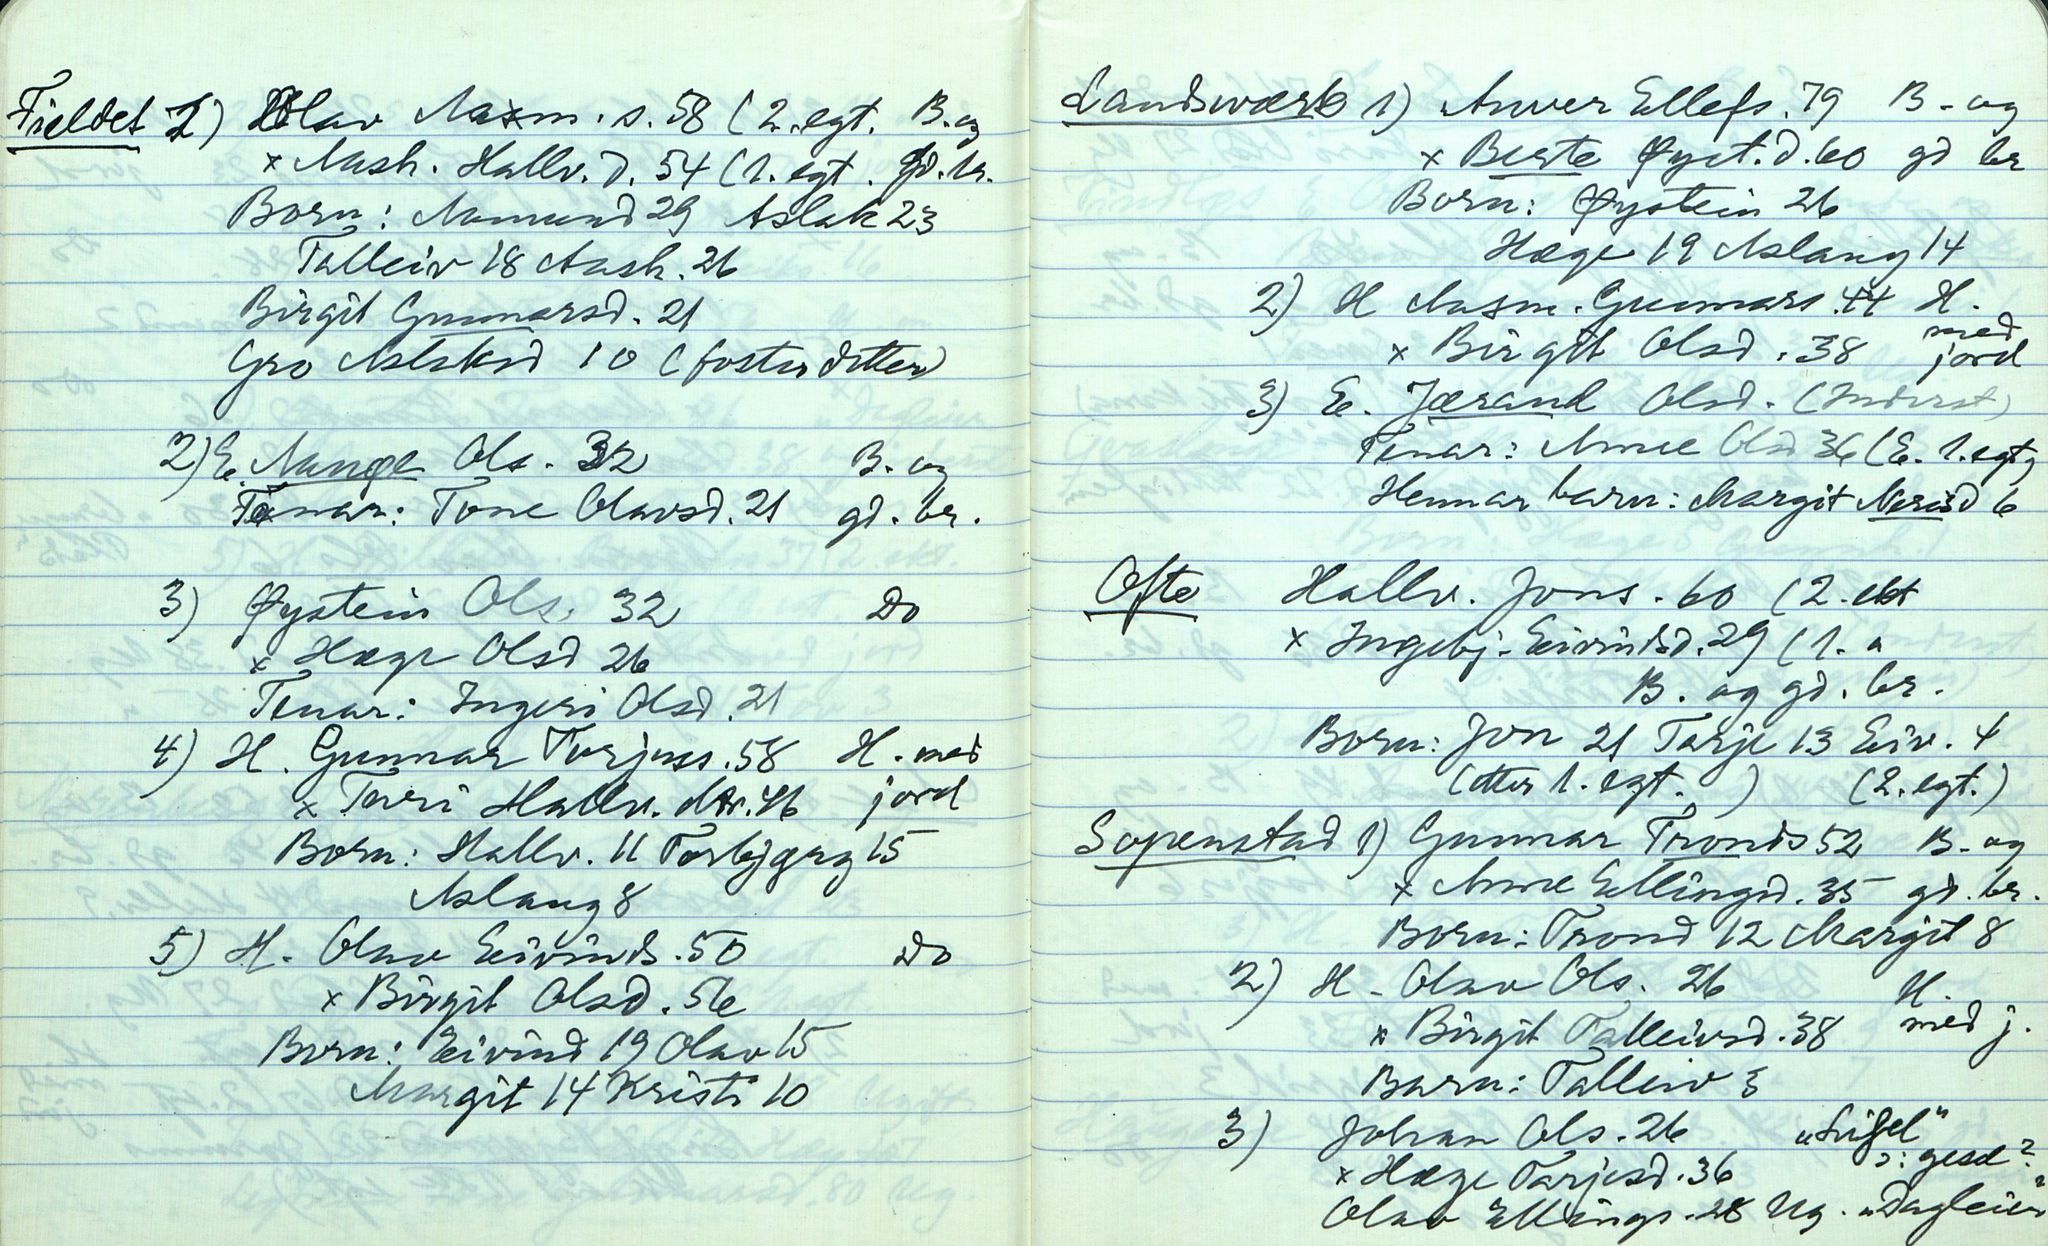 Fieldet 1) Olav Aasm. s. 58 (2. egt. B. og
x Aash. Hallv. d. 54 (1. egt. gd. br.
Born: Aamund 29 Aslak 23
Talleiv 18 Aash. 26
Birgit Gunnarsd. 21
Gro Aslaksd 10 (fosterdotter)
2) E. Aange Ols. 32 B. og
Tenar: Tone Olavsd. 21 gd. br.
3) Øystein Ols. 32 Do
x Hæge Olsd 26
Tenar: Ingeri Olsd. 21
4) H. Gunnar Torjuss. 58 H. med
x Torri Hallv. dtr. 46 jord
Born: Hallv. 11 Torbjørg 15
Aslaug 8
5) H. Olav Eivinds. 50 Do
x Birgit Olsd. 56
Born: Eivind 19 Olav 15
Margit 14 Kristi 10
Landsværk 1) Anver Ellefs. 79 B. og
x Berte Øyst. d. 60 gd br
Born: Øystein 26
Hæge 19 Aslaug 14
2) H Aasm. Gunnars. 44 H.
med
x Birgit Olsd. 38 jord
3) E. Jørand Olsd. (Inderst)
Tenar: Anne Olsd 36 (E. 1. egt)
Hennar barn: Margit Nerisd 6
Ofte Hallv. Jons. 60 (2. ekt
x Ingebj. Eivindsd. 29 (1. "
B. og gd. br.
Born: Jon 21 Tarje 13 Eiv. 4
(etter 1. egt. ) (2. egt.)
Sopenstad 1) Gunnar Tronds 52 B. og
x Anne Ellingsd. 35 gd. br.
Born: Trond 12 Margit 8
2) H. Olav Ols. 26 H.
x Birgit Talleivsd. 38 med j.
Barn: Talleiv 3
3) Johan Ols. 26
ɔ: gesel?
x Hæge Tarjesd. 36
Olav Ellings. 28 Ug. "Dagleier"